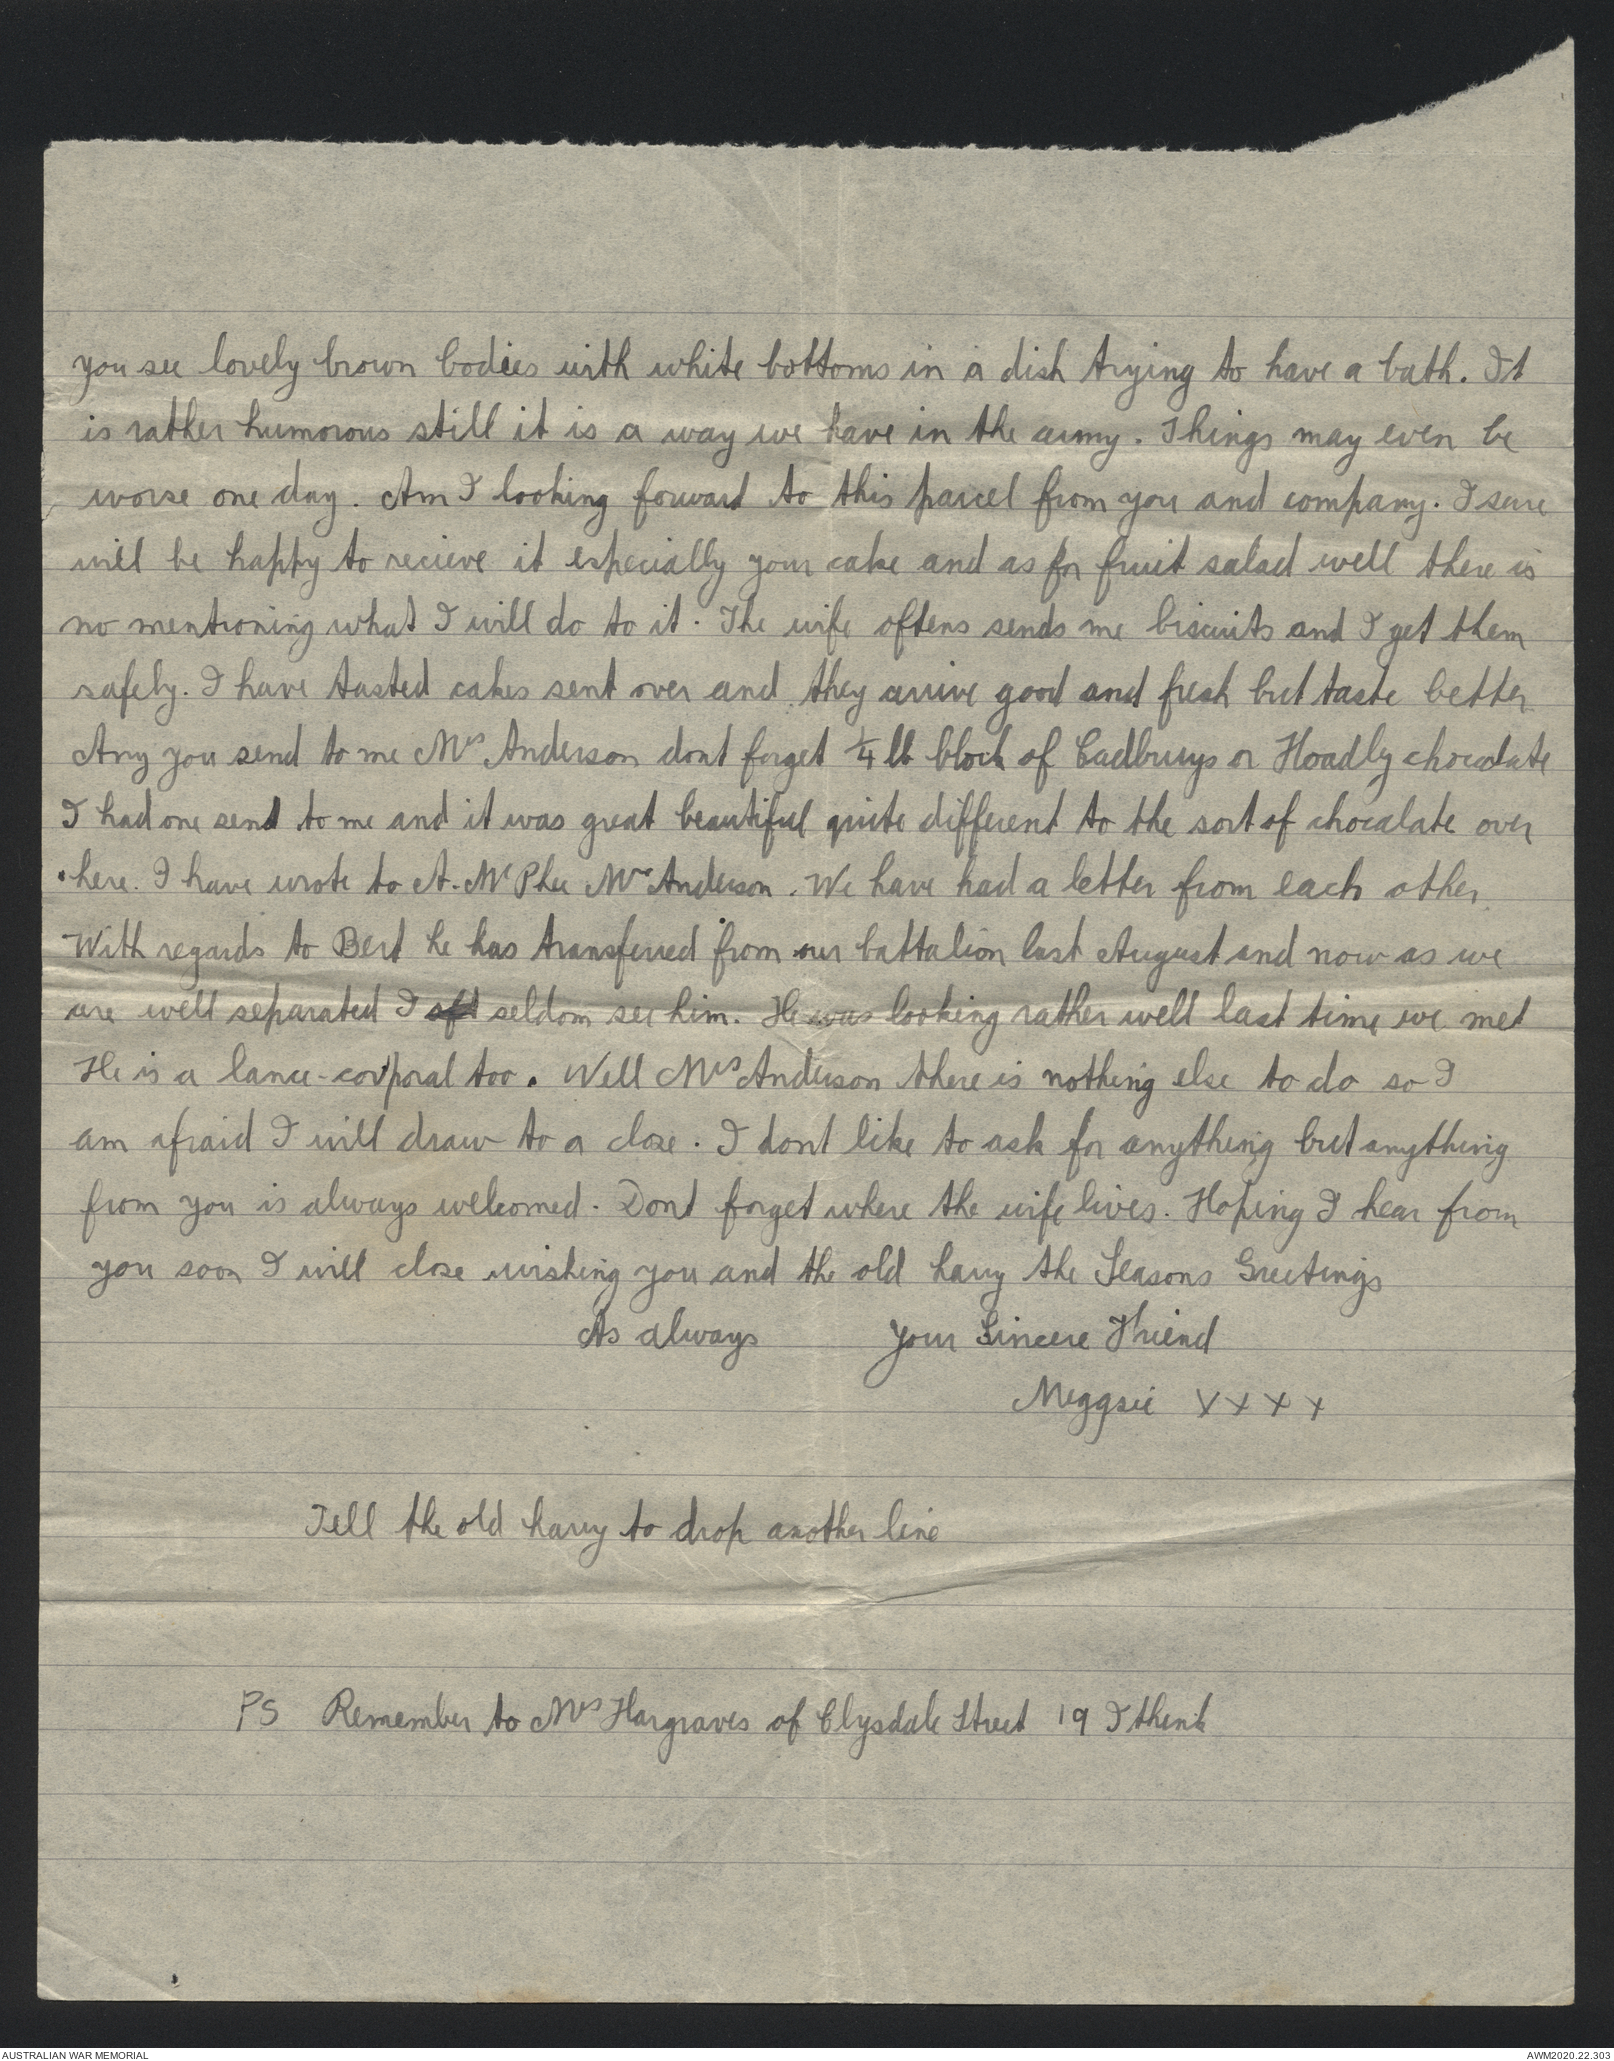 you see lovely brown bodies with white bottoms in a dish trying to have a bath. It
is rather humorous still it is a way we have in the army. Things may even be
worse one day. Am I looking forward to this parcel from you and company. I sure
will be happy to recieve it especially your cake and as for fruit salad well there is
no mentioning what I will do to it. The wife oftens sends me biscuits and I get them
safely. I have tasted cakes sent over and they arrive good and fresh but taste better
Any you send to me Mrs Anderson dont forget 1/4 lb block of Cadbruys or Hoadly chocolate
I had one send to me and it was great beautiful quite different to the sort of chocalate over
here. I have wrote to A. McPhee Mrs Anderson. We have had a letter from each other
With regards to Bert he has transferred from our battalion last August and now as we
are well separated I seldom see him. He was looking rather well last time we met
He is a lance-corporal too. Well Mrs Anderson there is nothing else to do so I
am afraid I will draw to a close. I dont like to ask for anything but anything
from you is always welcomed. Dont forget where the wife lives. Hoping I hear from
you soon I will close wishing you and the old harry the Seasons Greetings
As always Your Sincere Friend
Meggsie XXXX
Tell the old harry to drop another line
PS Remember to Mrs Hargraves of Clysdale Street 19 I think
AUSTRALIAN WAR MEMORIAL AWM2020.22.303